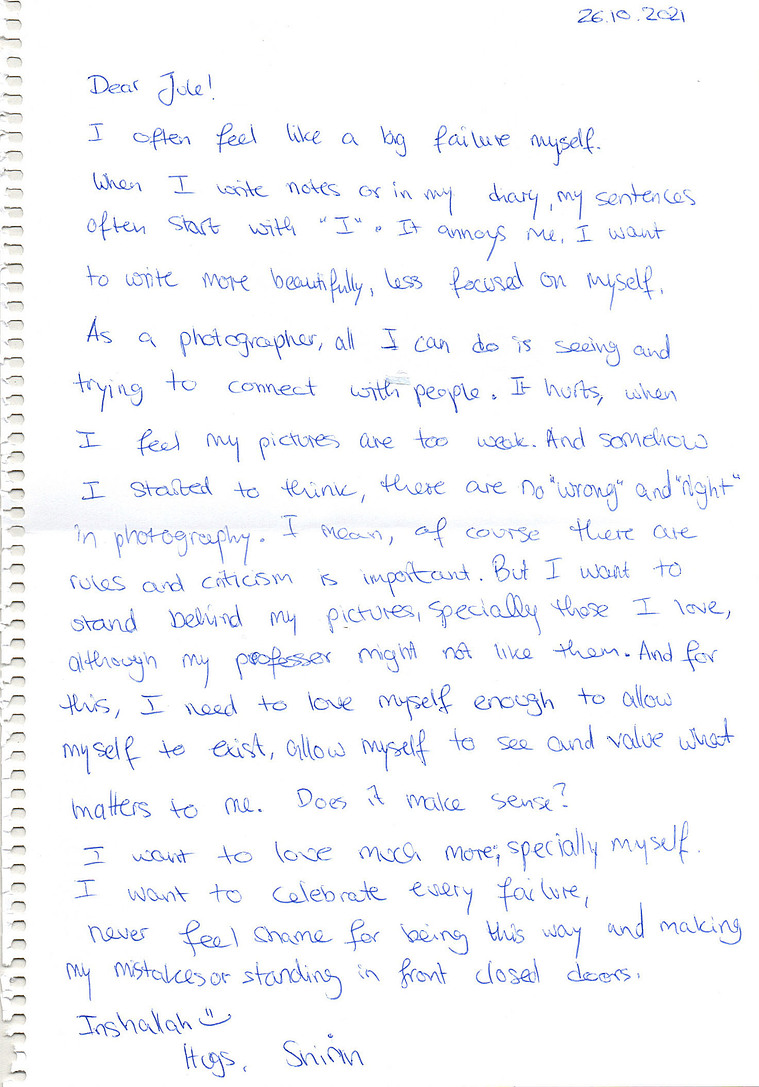 26.10.2021
Dear Jule!
I often feel like a big failure myself.
When I write notes or in my diary, my sentences
often start with "I". It annoys me, I want
to write more beautifully, less focused on myself.
As a photographer, all I can do is seeing and
trying to connect with people. It hurts, when
I feel my pictures are too weak. And somehow
I started to think, there are no "wrong" and "right"
in photography. I mean, of course there are
rules and criticism is important. But I want to
stand behind my pictures, specially those I love,
although my professer might not like them. And for
this, I need to love myself enough to allow
myself to exist, allow myself to see and value what
matters to me. Does it make sense?
I want to love much more, specially myself.
I want to celebrate every failure,
never feel shame for being this way and making
my mistakes or standing in front closed doors.
Inshallah
Hugs, Shirin